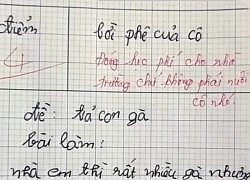 điểm
lời phê của cô
4
đóng học phí cho nhà
trường chứ không phải nuôi
cô nhé.
đề: tả con gà
bài làm:
nhà em thì rất nhiều gà nhưng